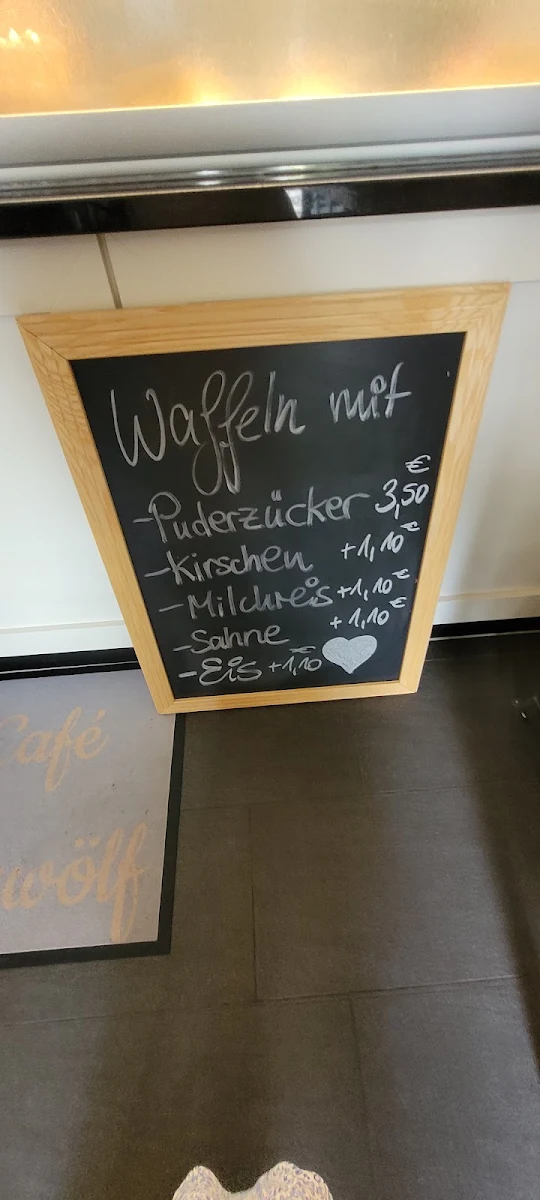 Waffeln mit
€
-Puderzücker 3,50
-Kirschen +1,10€
-Milchreis +1,10€
-Sahne +1,10€
-Eis +1,10€
Café
wölf